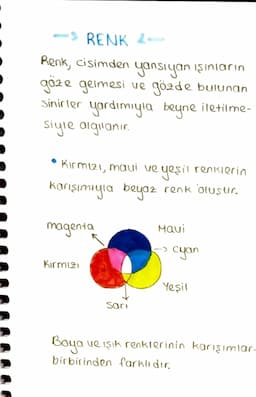 RENK
Renk, cisimden yansıyan ışınların
göze gelmesi ve gözde bulunan
sinirler yardımıyla beyne iletilme-
siyle algılanır.
• Kırmızı, mavi ve yeşil renklerin
karışımıyla beyaz renk oluşur.
magenta
Mavi
Cyan
Kırmızı
Yeşil
Sarı
Boya ve ışık renklerinin karışımlar-
birbirinden farklıdır.